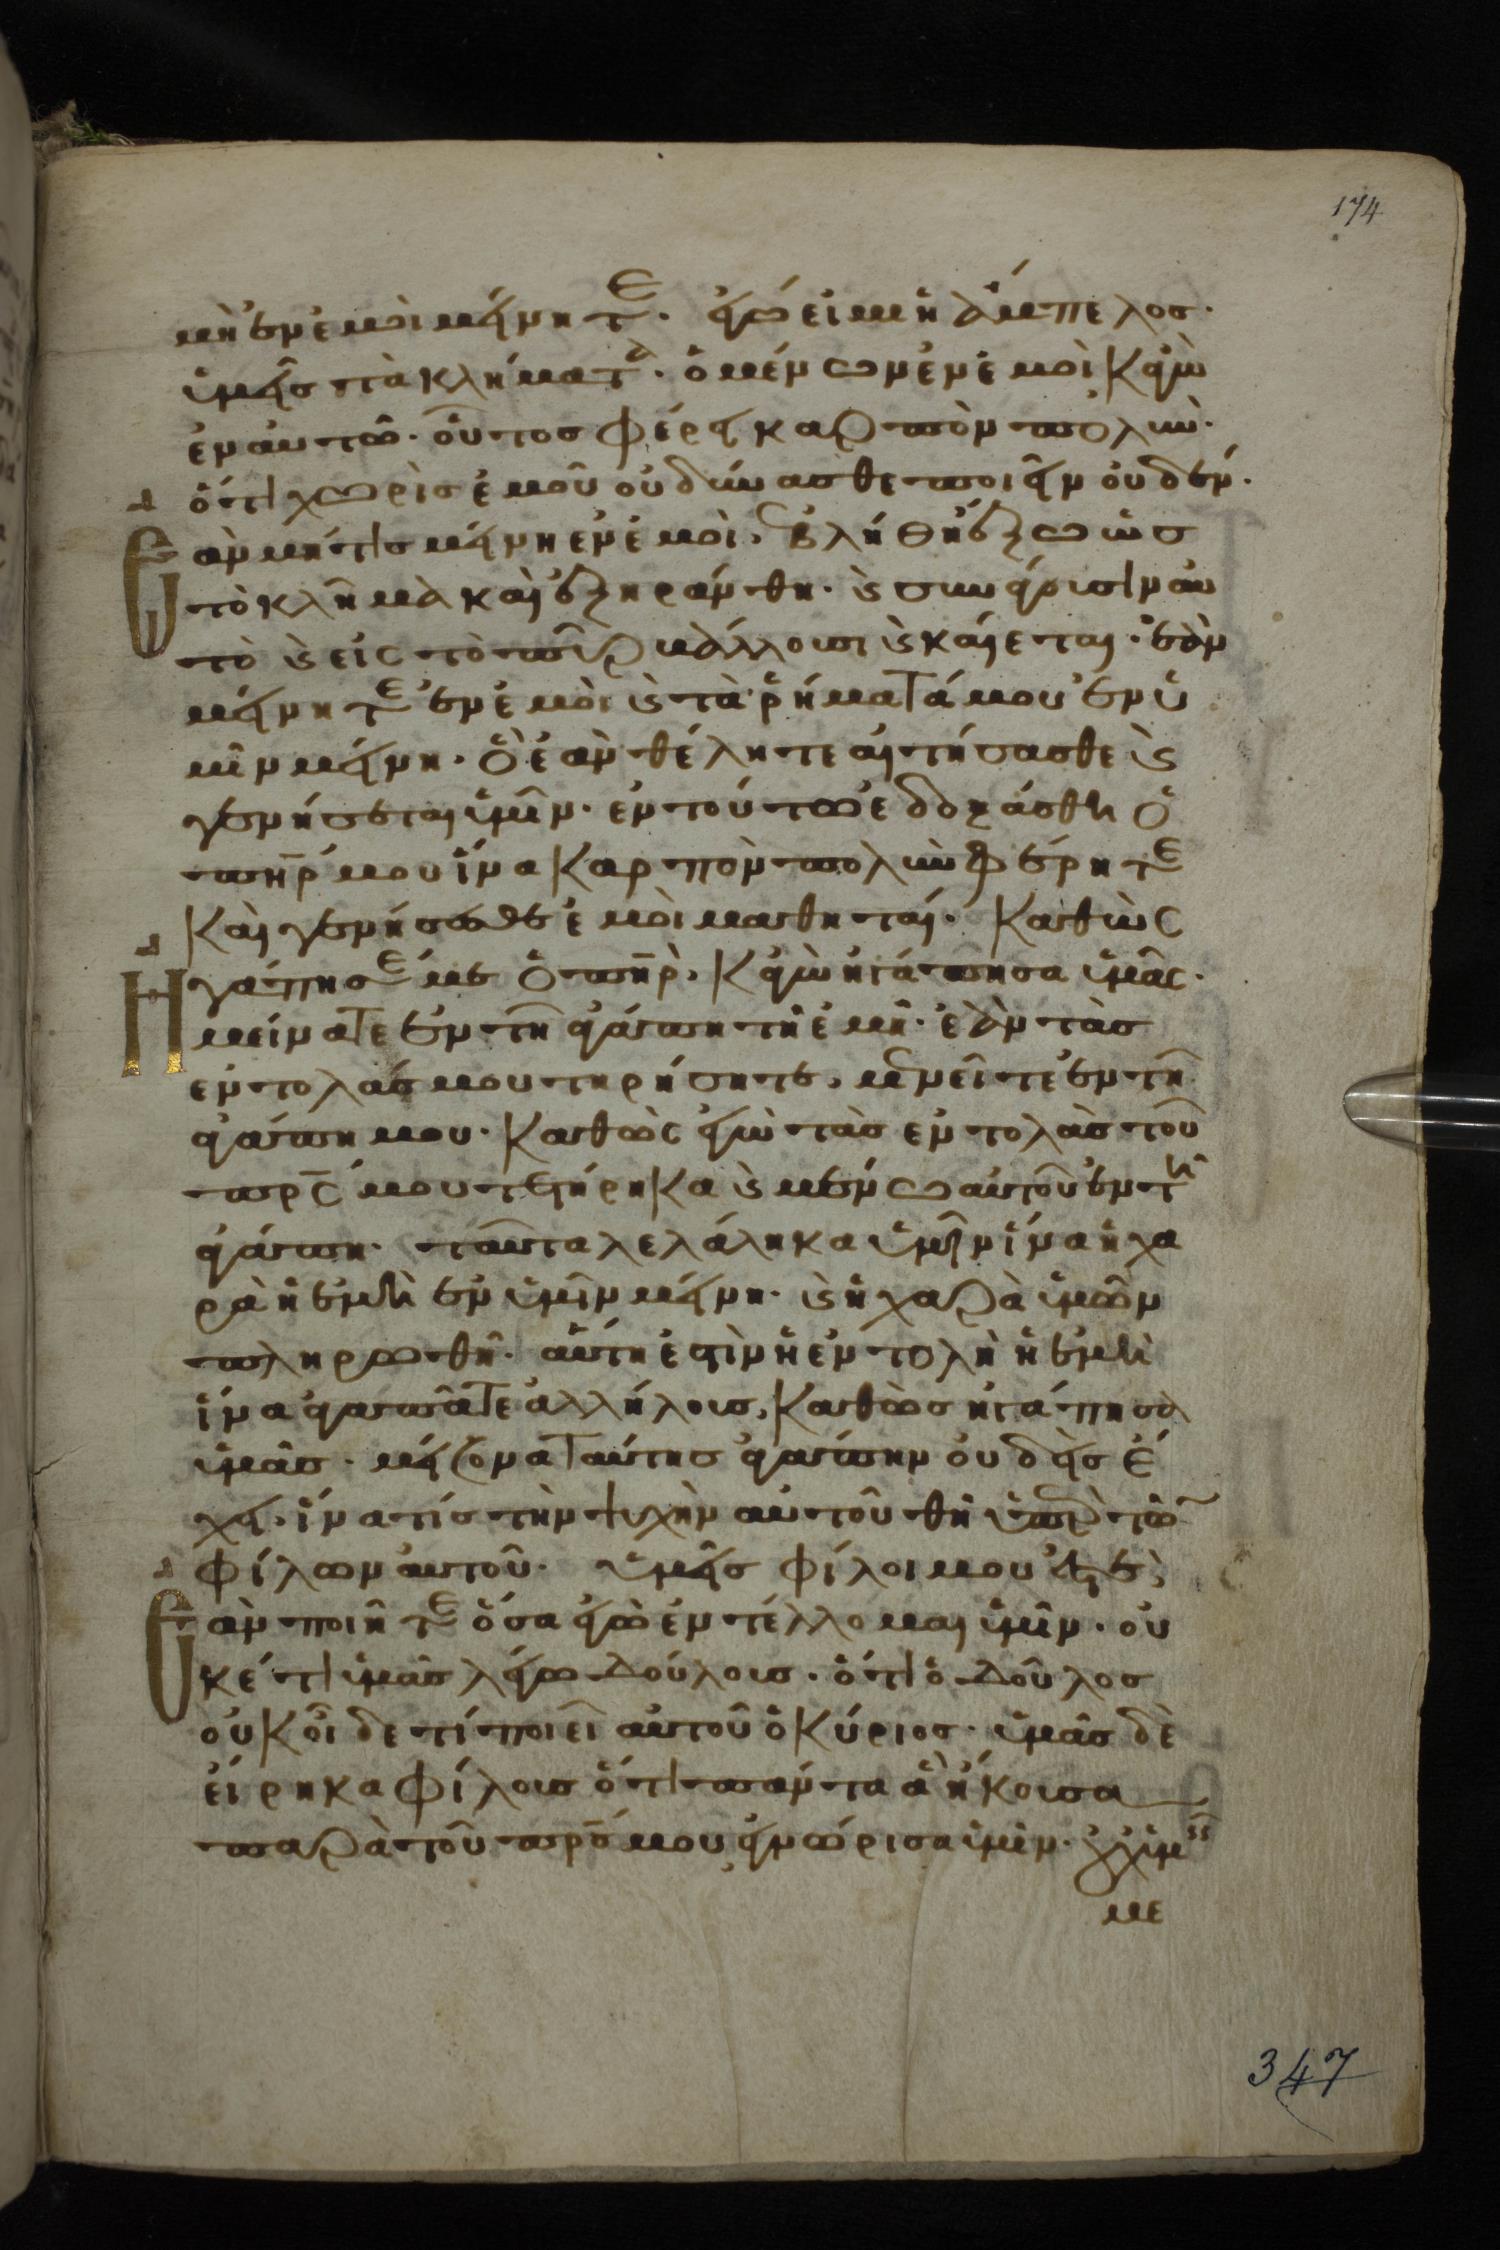 174
μὴ ἐν ἐμοὶ μείνητε. ἐγώ εἰμι ἡ ἄμπελος.
ὑμεῖς τὰ κλήματα. ὁ μένων ἐν ἐμοὶ κἀγὼ
ἐν αυτῶ. οὗτος φέρει καρπὸν πολύν.
ὅτι χωρὶς ἐμοῦ οὐ δύνασθε ποιεῖν οὐδέν.
Ἐὰν μήτις μείνη ἐν ἐμοὶ, ἐβλήθη ἔξω ὡς
τὸ κλῆμα καὶ ἐξηράνθη. καὶ συνάγουσιν αυ
τὸ καὶ εἰς τὸ πῦρ βάλλουσι καὶ καίεται. ἐὰν
μείνητε ἐν ἐμοὶ καὶ τὰ ῥήματά μου ἐν ὑ
μῖν μείνη. ὃ ἐὰν θέλητε αἰτήσασθε καὶ
γενήσεται ὑμῖν. ἐν τούτω ἐδοξάσθη ὁ
πηρ μου ἵνα καρπὸν πολὺν φέρητε
καὶ γενήσεσθε ἐμοὶ μαθηταί. καθὼς
Ἠγάπησέ με ὁ πηρ, κἀγὼ ἠγάπησα ὑμᾶς.
μείνατε ἐν τῆ ἀγάπη τῆ ἐμῆ. ἐὰν τὰς
ἐντολάς μου τηρήσητε, μενεῖτε ἐν τῆ
ἀγάπη μου. καθὼς ἐγὼ τὰς ἐντολὰς τοῦ
πρς μου τετήρηκα καὶ μένω αυτοῦ ἐν τῆ
ἀγάπη. ταῦτα λελάληκα ὑμῖν ἵνα ἡ χα
ρὰ ἡ ἐμὴ ἐν ὑμῖν μείνη. καὶ ἡ χαρὰ ὑμῶν
πληρωθῆ. αὕτη ἐστὶν ἡ ἐντολὴ ἡ ἐμὴ
ἵνα ἀγαπᾶτε ἀλλήλους, καθὼς ἠγάπησα
ὑμᾶς. μείζονα ταύτης ἀγάπην οὐδεὶς ἔ
χει, ἵνα τίς τὴν ψυχὴν αὐτοῦ θῆ ὑπὲρ τῶν
φίλων αυτοῦ. ὑμεῖς φίλοι μου ἐστὲ,
Ἐὰν ποιῆτε ὅσα ἐγὼ ἐντέλλομαι ὑμῖν. οὐ
κέτι ὑμᾶς λέγω δούλους. ὅτι ὁ δοῦλος
οὐκ οἶδε τί ποιεῖ αυτοῦ ὁ κύριος. ὑμᾶς δὲ
εἴρηκα φίλους ὅτι πάντα ἃ ἤκουσα
παρὰ τοῦ πρς μου ἐγνώρισα ὑμῖν. οὐχ ὑμεῖς
με
347